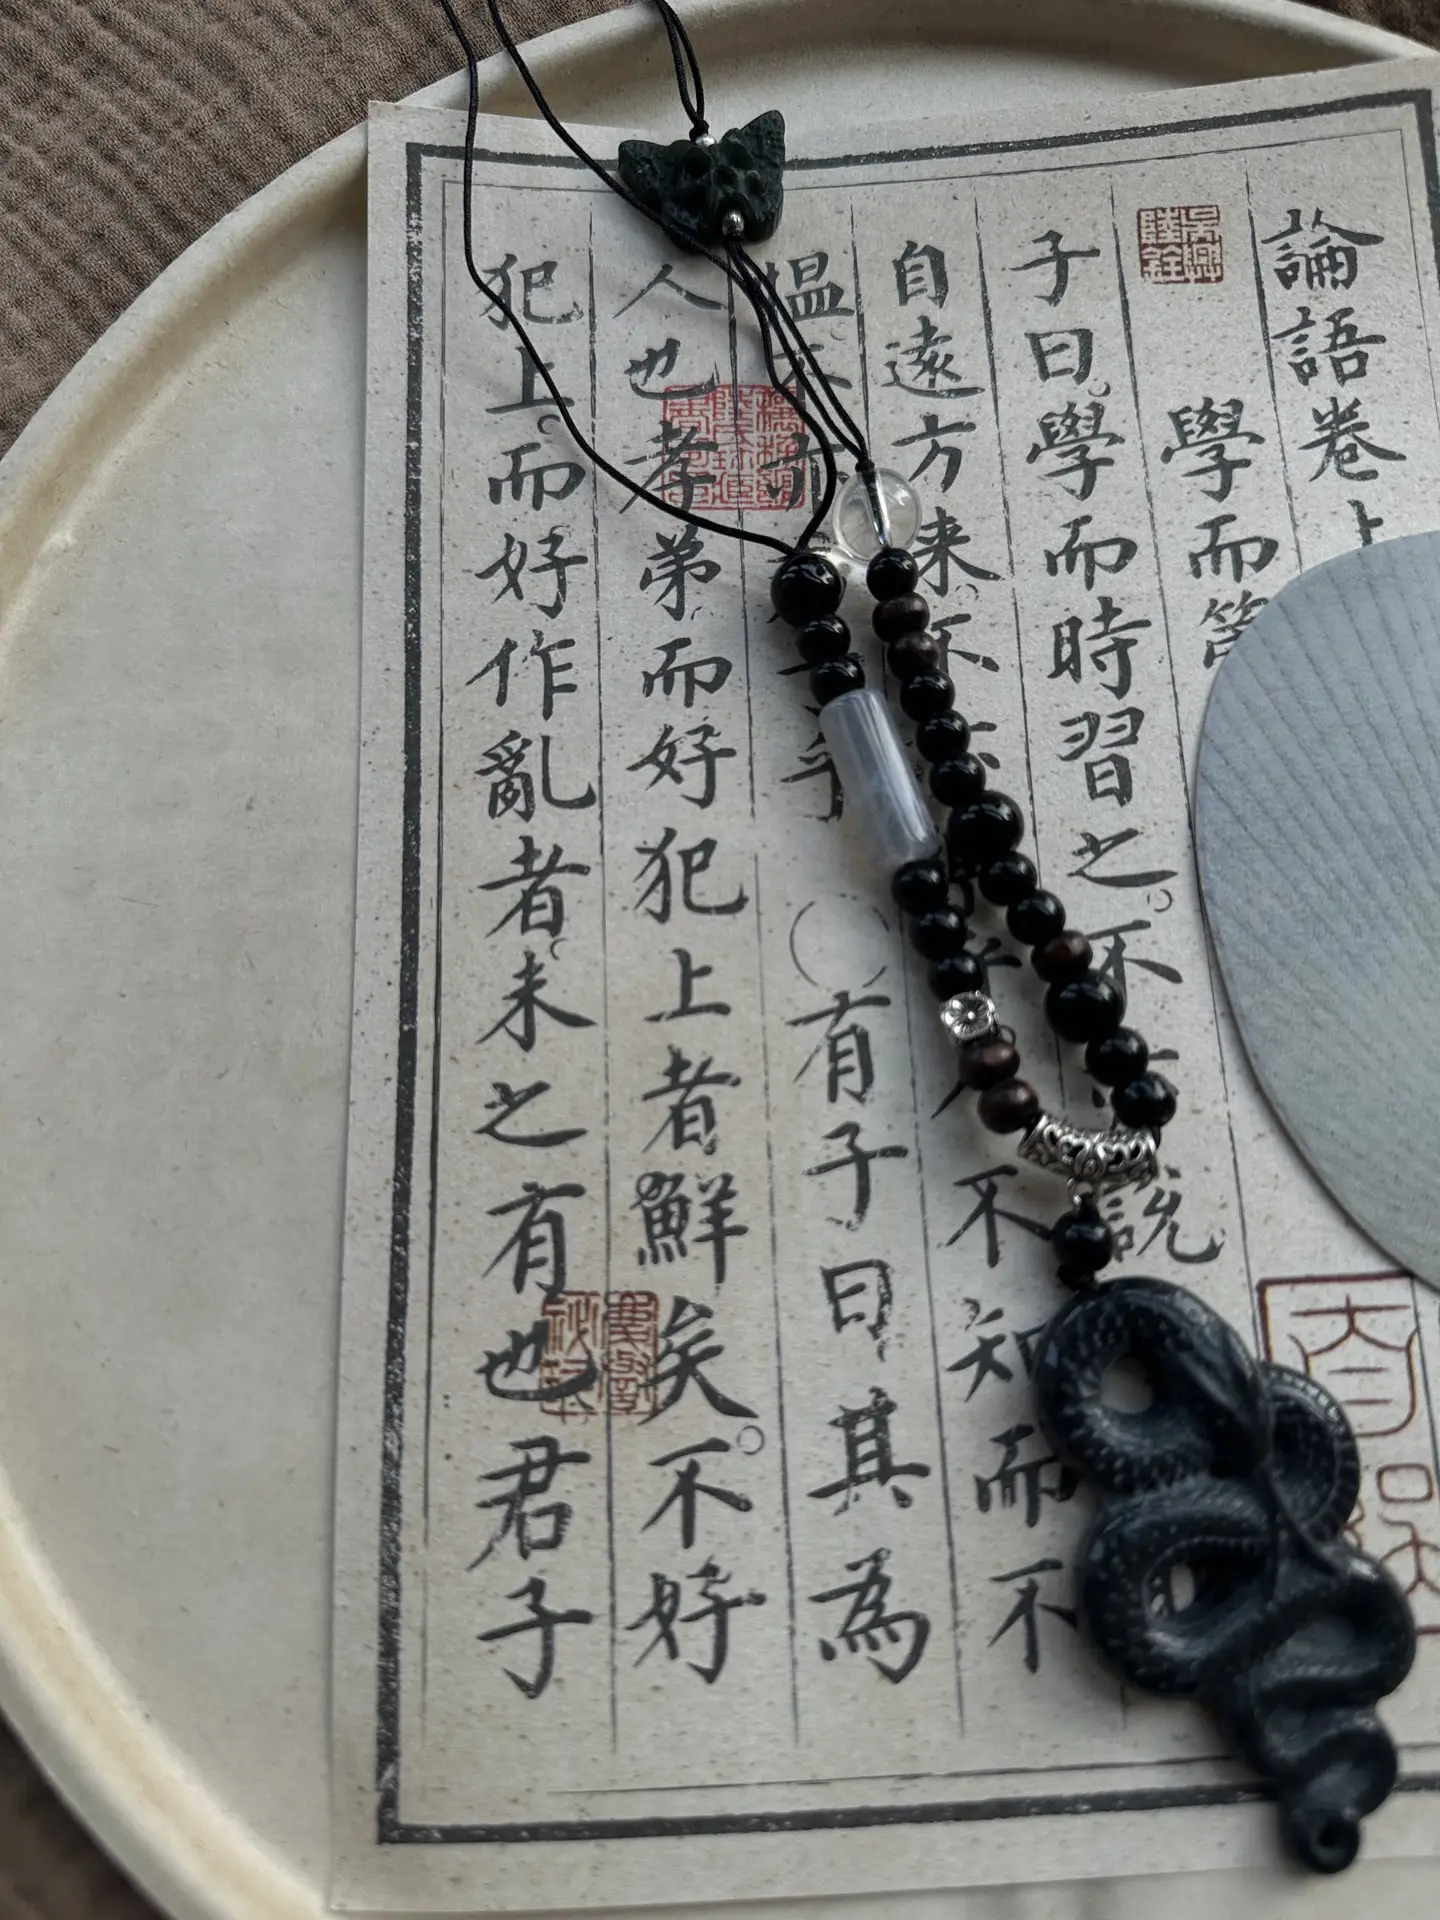 論語卷上
學而
吳興陸銓
子曰。學而時習之。不說
自遠方来。不乎人不知而不
愠不亦乎○有子曰其為
人也孝弟而好犯上者鮮矣。不好
犯上。而好作亂者。未之有也君子